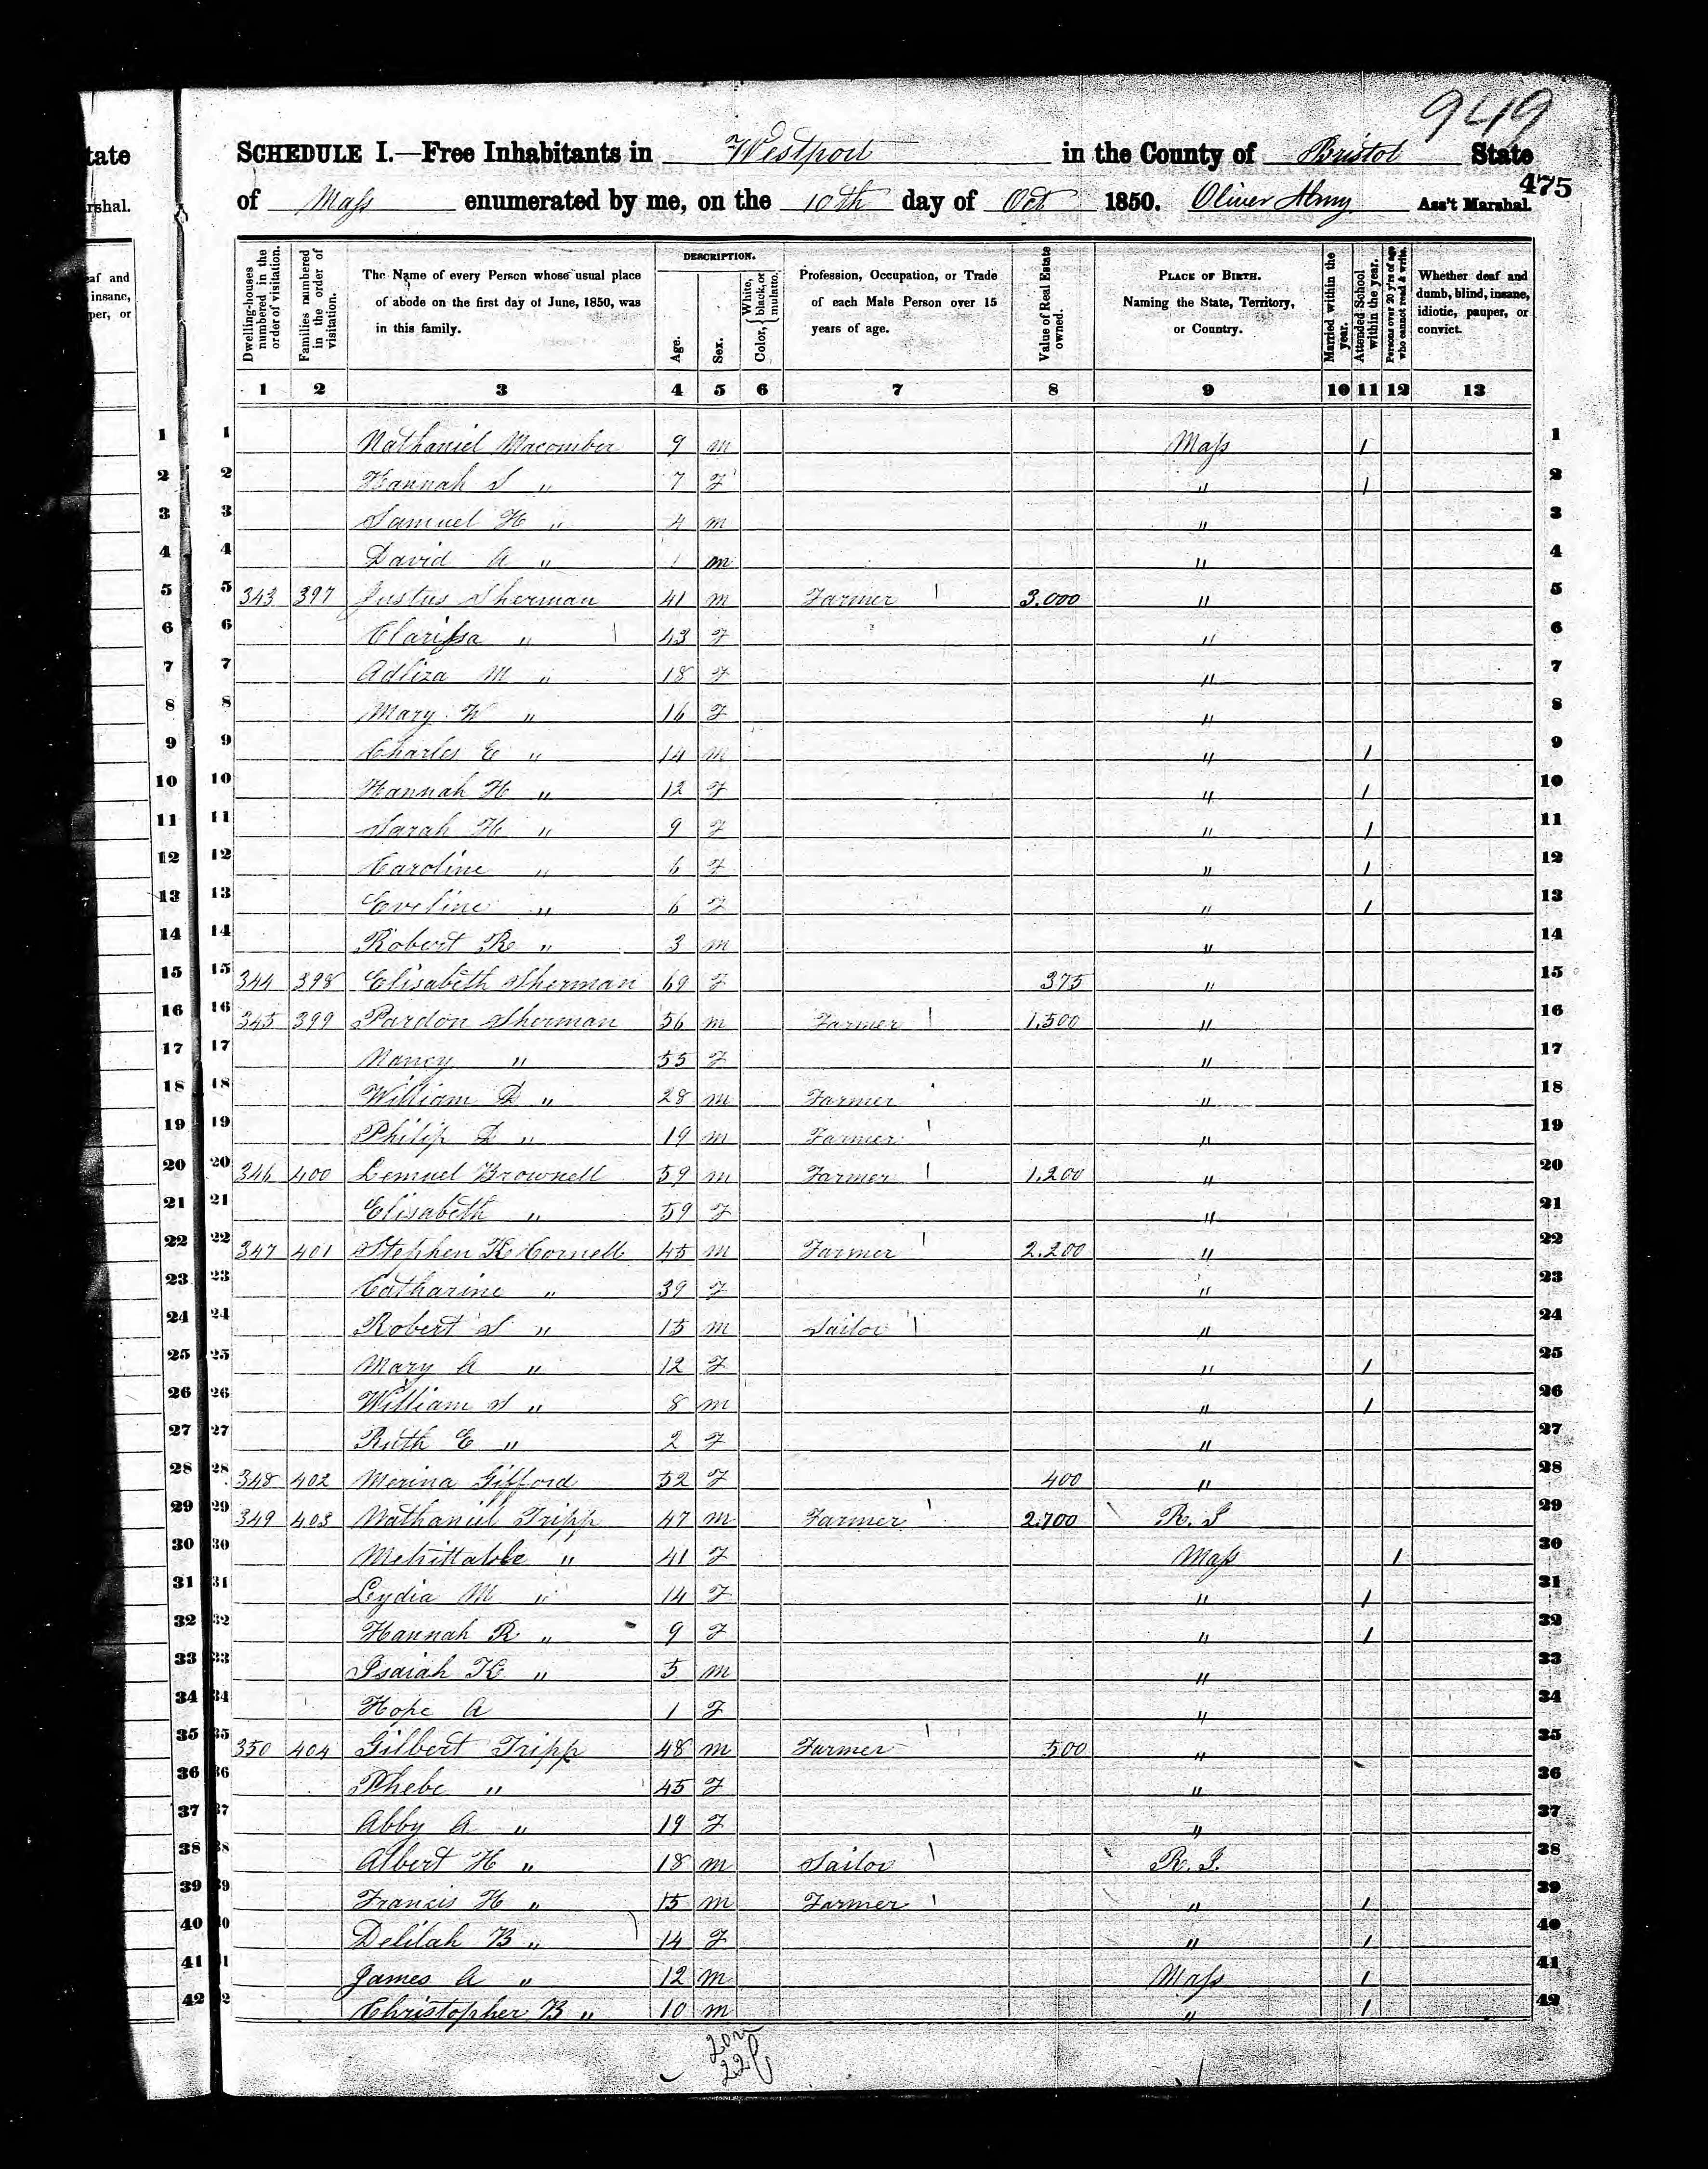 949
SCHEDULE I.—Free Inhabitants in Westport in the County of Bristol State
475
of Mass enumerated by me, on the 10th day of Oct 1850. Oliver Almy Ass't Marshal.
Dwelling-houses numbered in the order of visitation.
Families numbered in the order of visitation.
The Name of every Person whose usual place of abode on the first day of June, 1850, was in this family.
DESCRIPTION.
Age.
Sex.
Color, { White, black, or mulatto.
Profession, Occupation, or Trade of each Male Person over 15 years of age.
Value of Real Estate owned.
PLACE OF BIRTH. Naming the State, Territory, or Country.
Married within the year.
Attended School within the year.
Persons over 20 y'rs of age who cannot read & write.
Whether deaf and dumb, blind, insane, idiotic, pauper, or convict.
1 2 3 4 5 6 7 8 9 10 11 12 13
1 Nathaniel Macomber 9 m Mass 1 1
2 Hannah S " 7 F " 1 2
3 Samuel H " 4 m " 3
4 David A " 1 m " 4
5 343 397 Justus Sherman 41 m Farmer 3.000 " 5
6 Clarissa " 43 F " 6
7 Adliza M " 18 F " 7
8 Mary W " 16 F " 8
9 Charles E " 14 m " 1 9
10 Hannah H " 12 F " 1 10
11 Sarah H " 9 F " 1 11
12 Caroline " 6 F " 1 12
13 Eveline " 6 F " 1 13
14 Robert R " 3 m " 14
15 344 398 Elisabeth Sherman 69 F 375 " 15
16 345 399 Pardon Sherman 56 m Farmer 1.500 " 16
17 Nancy " 55 F " 17
18 William D " 28 m Farmer " 18
19 Philip D " 19 m Farmer " 19
20 346 400 Lemuel Brownell 59 m Farmer 1.200 " 20
21 Elisabeth " 59 F " 21
22 347 401 Stephen K Cornell 45 m Farmer 2.200 " 22
23 Catharine " 39 F " 23
24 Robert S " 15 m Sailor " 24
25 Mary A " 12 F " 1 25
26 William S " 8 m " 1 26
27 Ruth E " 2 F " 27
28 348 402 Merina Gifford 52 F 400 " 28
29 349 403 Nathaniel Tripp 47 m Farmer 2.700 R. I 29
30 Mehittable " 41 F Mass 1 30
31 Lydia M " 14 F " 1 31
32 Hannah R " 9 F " 1 32
33 Isaiah K " 5 m " 33
34 Hope A 1 F " 34
35 350 404 Gilbert Tripp 48 m Farmer 500 " 35
36 Phebe " 45 F " 36
37 Abby A " 19 F " 37
38 Albert H " 18 m Sailor R. I. 38
39 Francis H " 15 m Farmer " 1 39
40 Delilah B " 14 F " 1 40
41 James A " 12 m Mass 1 41
42 Christopher B " 10 m " 1 42
20m
22f